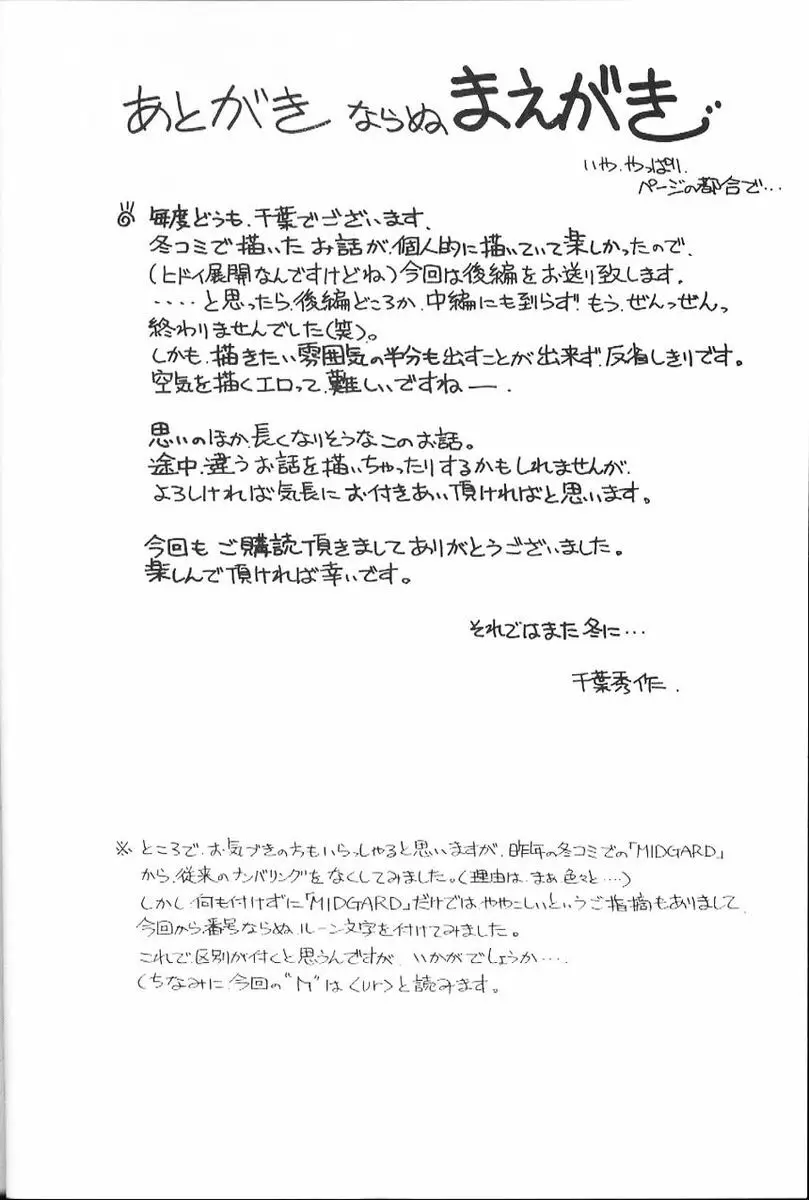 あとがき ならぬ、まえがき
いや、やっぱり、
ページの都合で…
毎度どうも、千葉でございます。
冬コミで描いたお話が、個人的に描いていて楽しかったので、
(ヒドイ展開なんですけどね)今回は後編をお送り致します。
‥‥と思ったら、後編どころか、中編にも到らず!もう、ぜんっぜんっ
終わりませんでした(笑)。
しかも、描きたい雰囲気の半分も出すことが出来ず、反省しきりです。
空気を描くエロって、難しいですねー。
思いのほか、長くなりそうなこのお話。
途中、違うお話を描いちゃったりするかもしれませんが、
よろしければ気長に お付きあい頂ければと思います。
今回も ご購読頂きましてありがとうございました。
楽しんで頂ければ幸いです。
それではまた冬に…
千葉秀作.
※ ところで、お気づきの方もいらっしゃると思いますが、昨年の冬コミでの「MIDGARD」
から、従来のナンバリングをなくしてみました。(理由は、まぁ色々と‥‥)
しかし 何も付けずに「MIDGARD」だけでは ややこしいというご指摘もありまして、
今回から番号ならぬ、ルーン文字を付けてみました。
これで区別が付くと思うんですが、いかがでしょうか‥‥
(ちなみに、今回の"ᚢ"は<ur>と読みます。